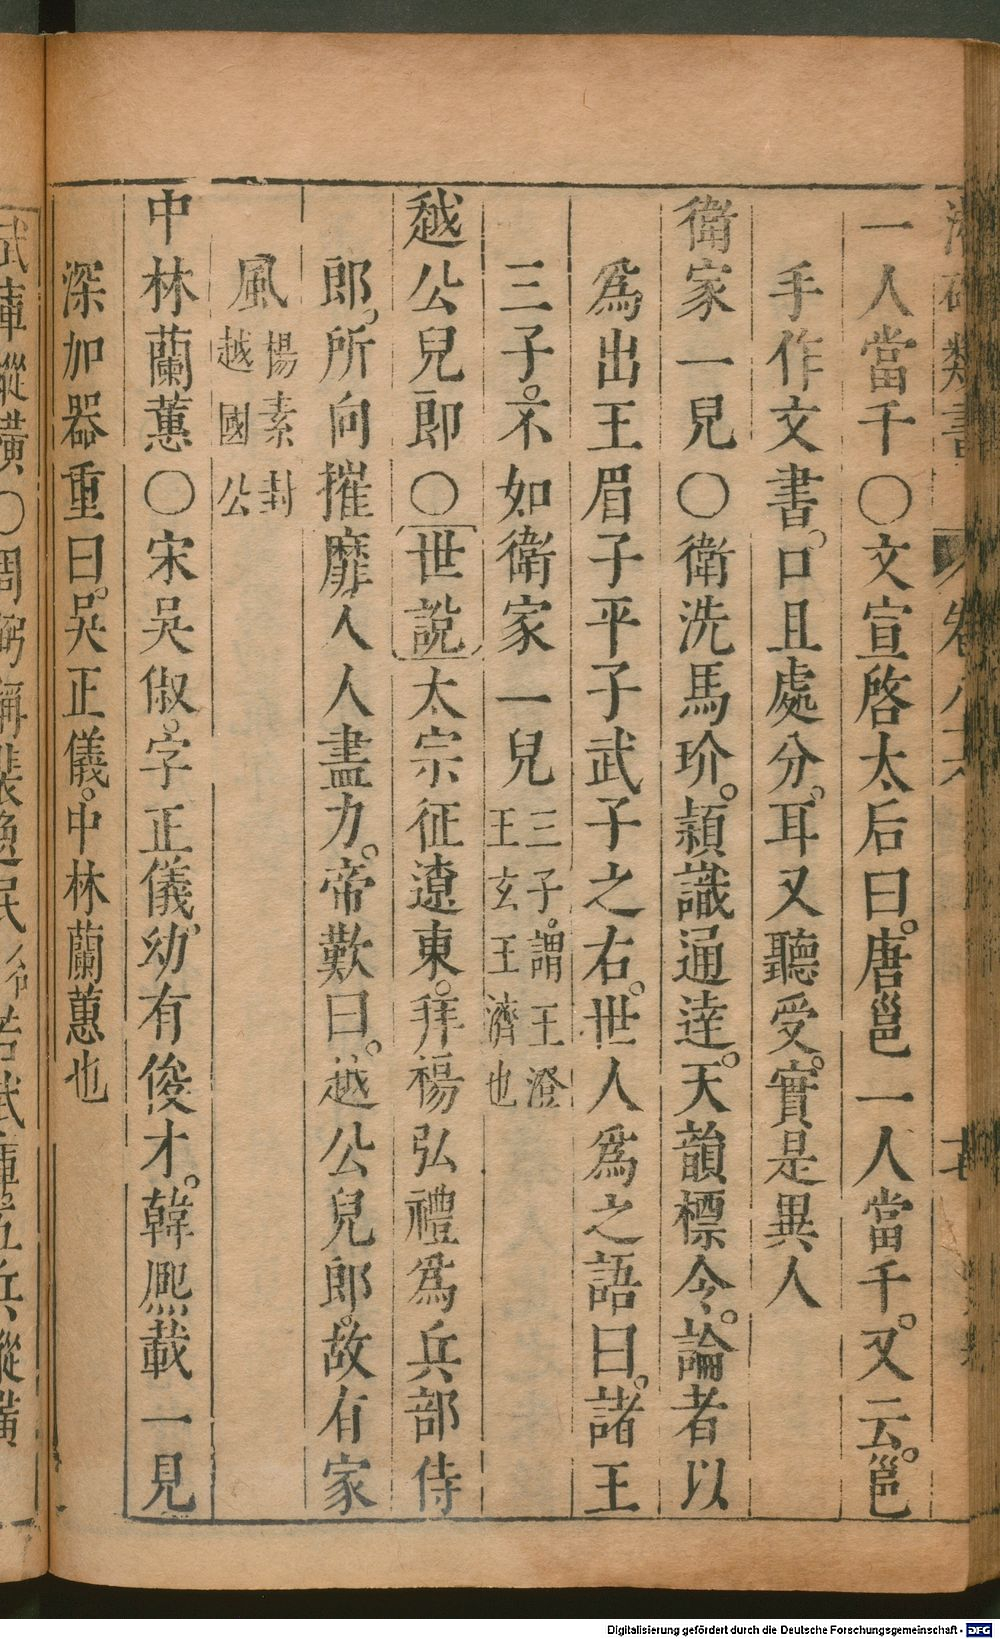 一人當千○文宣啓太后曰。唐邕一人當千。又云。邕
手作文書。口且處分。耳又聽受。實是異人
衛家一兒○衛洗馬玠。頴識通達。天韻標令。論者以
爲出王眉子平子武子之右。世人爲之語曰。諸王
三子。不如衛家一兒三子。謂王澄王玄王濟也
越公兒郎○世說太宗征遼東。拜楊弘禮爲兵部侍
郎。所向摧靡人人盡力。帝歎曰。越公兒郎。故有家
風楊素封越國公
中林蘭蕙○宋吳俶。字正儀。幼有俊才。韓熈載一見
深加器重曰。吳正儀。中林蘭蕙也
武庫縱橫○周弼稱裴
Digitalisierung gefördert durch die Deutsche Forschungsgemeinschaft - DFG